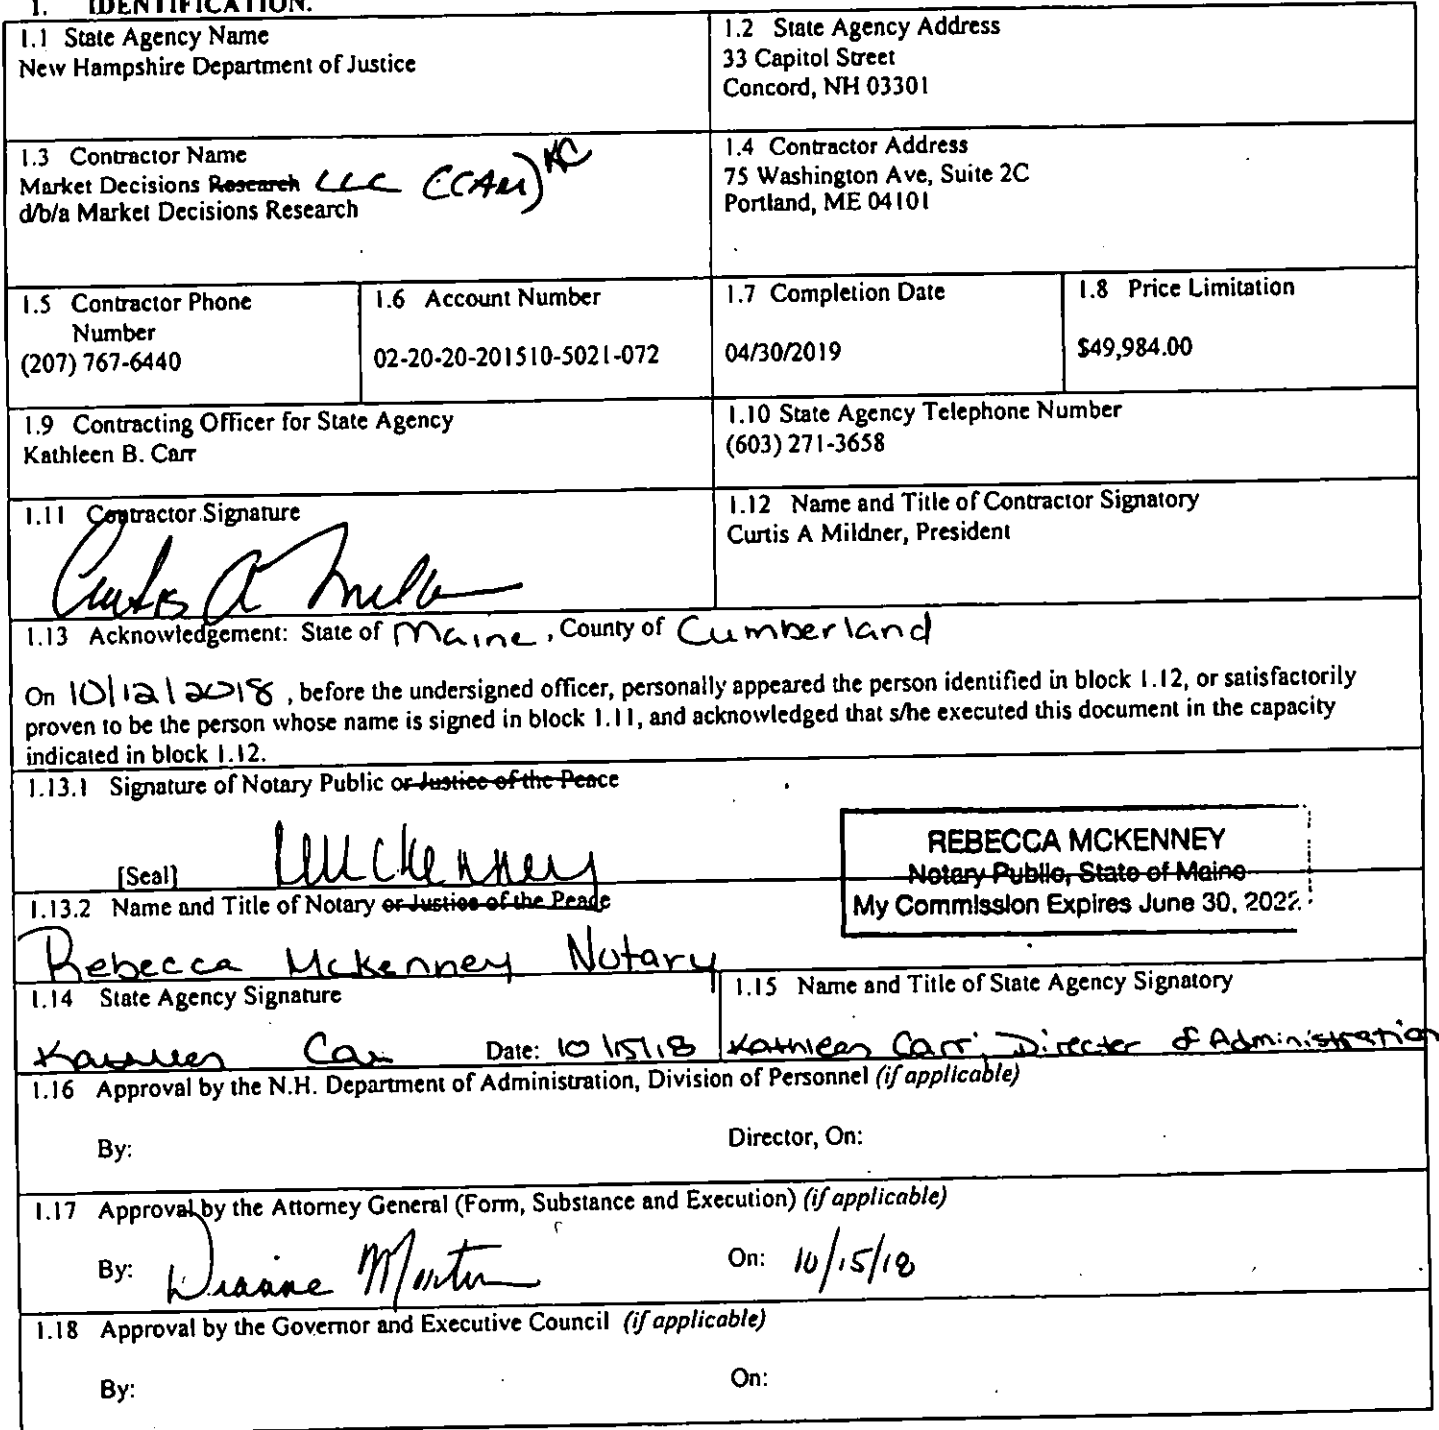 1. IDENTIFICATION.
1.1 State Agency Name
New Hampshire Department of Justice
1.2 State Agency Address
33 Capitol Street
Concord, NH 03301
1.3 Contractor Name
Market Decisions Research LLC (CAM) KC
d/b/a Market Decisions Research
1.4 Contractor Address
75 Washington Ave, Suite 2C
Portland, ME 04101
1.5 Contractor Phone
Number
(207) 767-6440
1.6 Account Number
02-20-20-201510-5021-072
1.7 Completion Date
04/30/2019
1.8 Price Limitation
$49,984.00
1.9 Contracting Officer for State Agency
Kathleen B. Carr
1.10 State Agency Telephone Number
(603) 271-3658
1.11 Contractor Signature
Curtis A Mildner
1.12 Name and Title of Contractor Signatory
Curtis A Mildner, President
1.13 Acknowledgement: State of Maine, County of Cumberland
On 10/12/2018, before the undersigned officer, personally appeared the person identified in block 1.12, or satisfactorily
proven to be the person whose name is signed in block 1.11, and acknowledged that s/he executed this document in the capacity
indicated in block 1.12.
1.13.1 Signature of Notary Public or Justice of the Peace
[Seal] McKenney
REBECCA MCKENNEY
Notary Public, State of Maine
My Commission Expires June 30, 2022
1.13.2 Name and Title of Notary or Justice of the Peace
Rebecca McKenney Notary
1.14 State Agency Signature
Kathleen Carr Date: 10/15/18
1.15 Name and Title of State Agency Signatory
Kathleen Carr, Director of Administration
1.16 Approval by the N.H. Department of Administration, Division of Personnel (if applicable)
By: Director, On:
1.17 Approval by the Attorney General (Form, Substance and Execution) (if applicable)
By: Dianne Martin On: 10/15/18
1.18 Approval by the Governor and Executive Council (if applicable)
By: On: